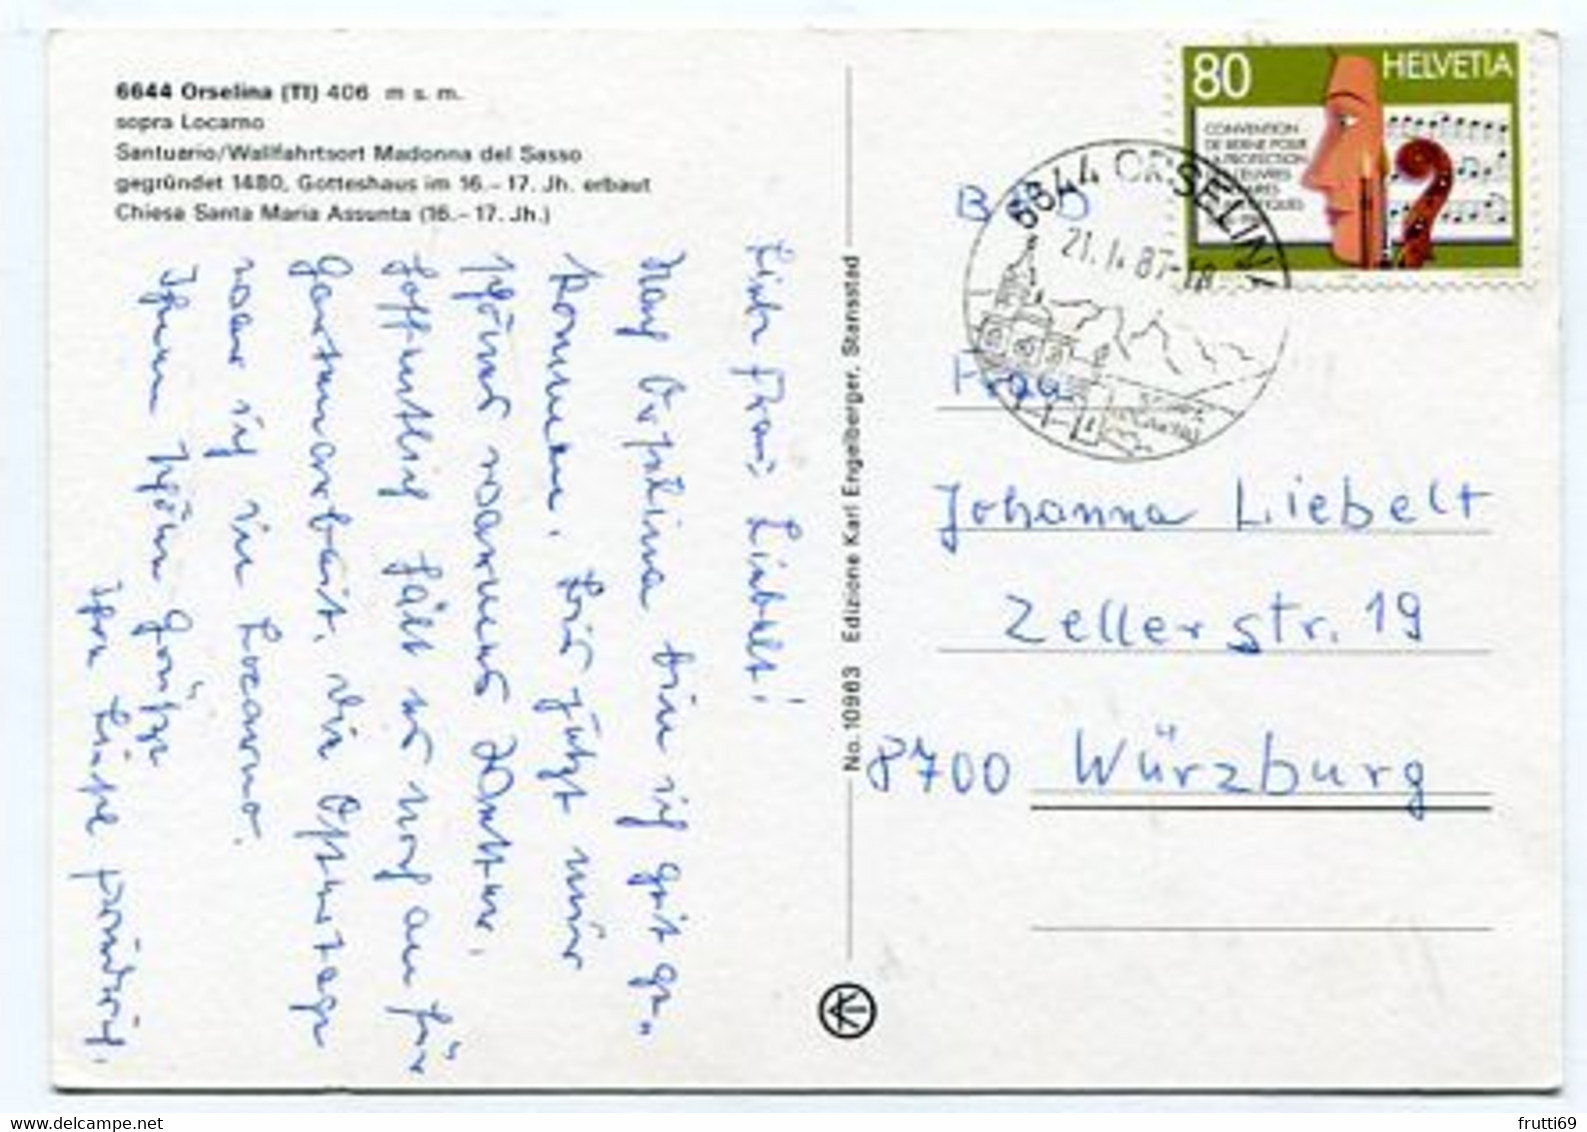 6644 Orselina (TI) 406 m s. m.
sopra Locarno
Santuario/Wallfahrtsort Madonna del Sasso
gegründet 1480, Gotteshaus im 16.-17. Jh. erbaut
Chiesa Santa Maria Assunta (16.-17. Jh.)
Liebe Frau Liebelt!
Nach Orselina bin ich gut ge-
kommen. Hier jetzt
schönes warmes Wetter.
Hoffentlich hält es noch an für
Gartenarbeit. Die Ostertage
war ich in Locarno.
Ihnen schöne Grüße
Ihre
No. 10963 Edizione Karl Engelberger, Stansstad
80 HELVETIA
CONVENTION
DE BERNE POUR
LA PROTECTION
6644 ORSELINA
21. 87-18
Frau
Johanna Liebelt
Zellerstr. 19
8700 Würzburg
frutti69